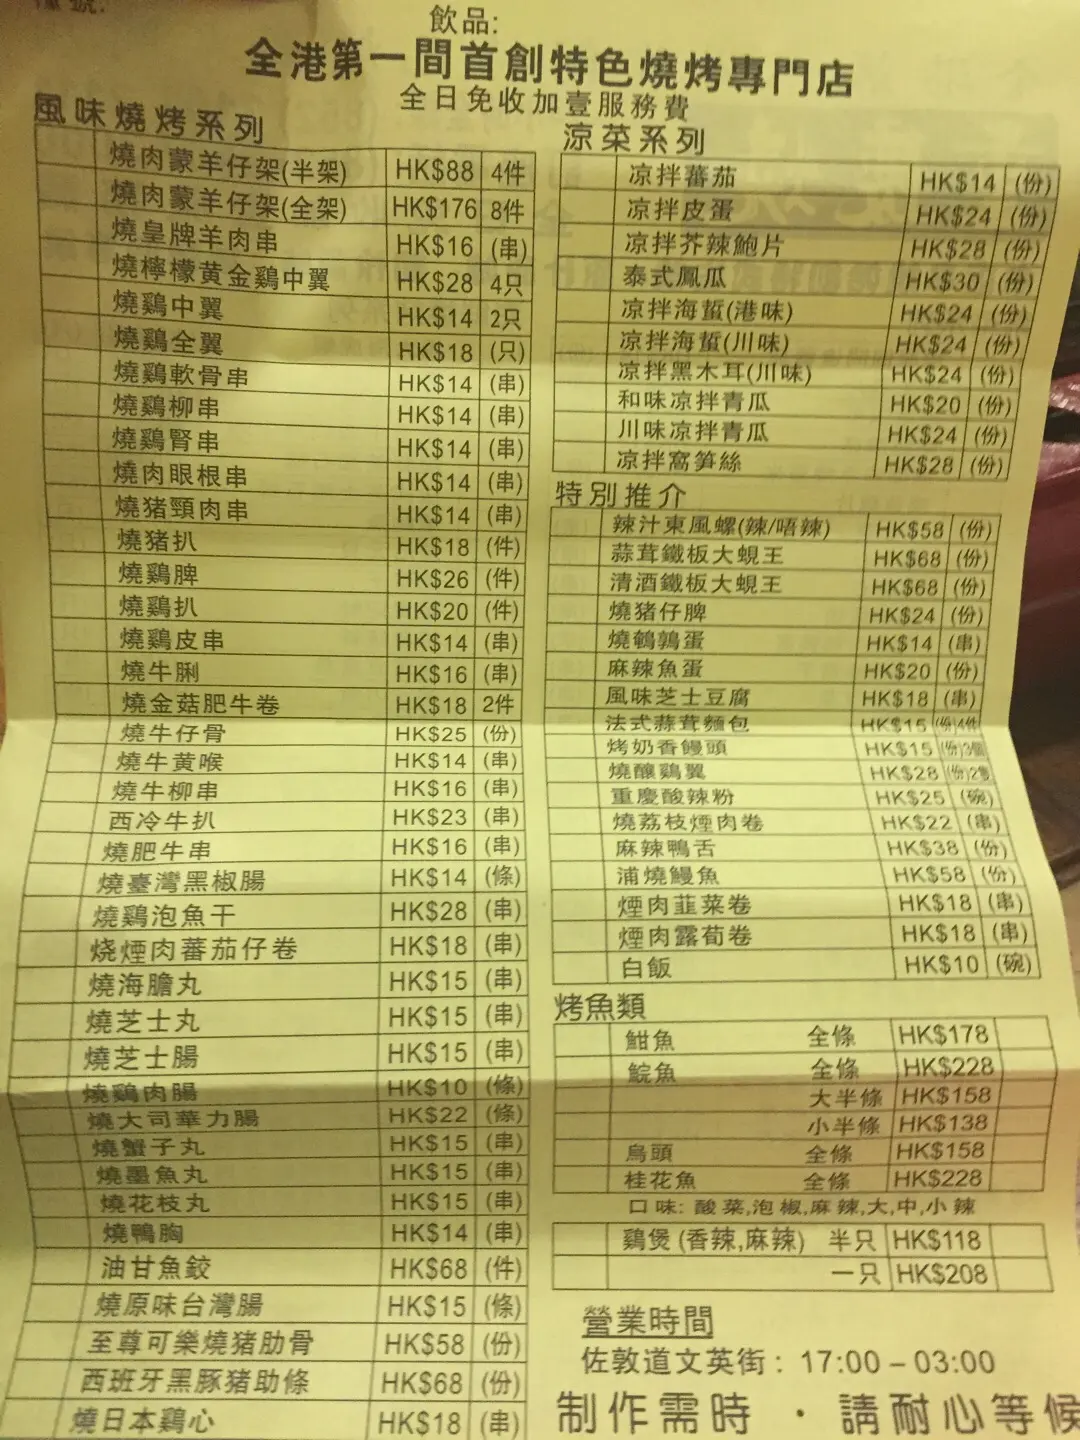 飲品:
全港第一間首創特色燒烤專門店
全日免收加壹服務費
風味燒烤系列
燒肉蒙羊仔架(半架) HK$88 4件
燒肉蒙羊仔架(全架) HK$176 8件
燒皇牌羊肉串 HK$16 (串)
燒檸檬黃金鷄中翼 HK$28 4只
燒鷄中翼 HK$14 2只
燒鷄全翼 HK$18 (只)
燒鷄軟骨串 HK$14 (串)
燒鷄柳串 HK$14 (串)
燒鷄腎串 HK$14 (串)
燒肉眼根串 HK$14 (串)
燒猪頸肉串 HK$14 (串)
燒猪扒 HK$18 (件)
燒鷄脾 HK$26 (件)
燒鷄扒 HK$20 (件)
燒鷄皮串 HK$14 (串)
燒牛脷 HK$16 (串)
燒金菇肥牛卷 HK$18 2件
燒牛仔骨 HK$25 (份)
燒牛黃喉 HK$14 (串)
燒牛柳串 HK$16 (串)
西冷牛扒 HK$23 (串)
燒肥牛串 HK$16 (串)
燒臺灣黑椒腸 HK$14 (條)
燒鷄泡魚干 HK$28 (串)
烧煙肉蕃茄仔卷 HK$18 (串)
燒海膽丸 HK$15 (串)
燒芝士丸 HK$15 (串)
燒芝士腸 HK$15 (串)
燒鷄肉腸 HK$10 (條)
燒大司華力腸 HK$22 (條)
燒蟹子丸 HK$15 (串)
燒墨魚丸 HK$15 (串)
燒花枝丸 HK$15 (串)
燒鴨胸 HK$14 (串)
油甘魚鮫 HK$68 (件)
燒原味台灣腸 HK$15 (條)
至尊可樂燒猪肋骨 HK$58 (份)
西班牙黑豚猪助條 HK$68 (份)
燒日本鷄心 HK$18 (串)
涼菜系列
凉拌蕃茄 HK$14 (份)
凉拌皮蛋 HK$24 (份)
凉拌芥辣鮑片 HK$28 (份)
泰式鳳瓜 HK$30 (份)
凉拌海蜇(港味) HK$24 (份)
凉拌海蜇(川味) HK$24 (份)
凉拌黑木耳(川味) HK$24 (份)
和味凉拌青瓜 HK$20 (份)
川味凉拌青瓜 HK$24 (份)
凉拌窩笋絲 HK$28 (份)
特別推介
辣汁東風螺(辣/唔辣) HK$58 (份)
蒜茸鐵板大蜆王 HK$68 (份)
清酒鐵板大蜆王 HK$68 (份)
燒猪仔脾 HK$24 (份)
燒鵪鶉蛋 HK$14 (串)
麻辣魚蛋 HK$20 (份)
風味芝士豆腐 HK$18 (串)
法式蒜茸麵包 HK$15 (份)4件
烤奶香饅頭 HK$15 (份)3個
燒釀鷄翼 HK$28 (份)2隻
重慶酸辣粉 HK$25 (碗)
燒荔枝煙肉卷 HK$22 (串)
麻辣鴨舌 HK$38 (份)
浦燒鰻魚 HK$58 (份)
煙肉韮菜卷 HK$18 (串)
煙肉露荀卷 HK$18 (串)
白飯 HK$10 (碗)
烤魚類
魽魚 全條 HK$178
鯇魚 全條 HK$228
大半條 HK$158
小半條 HK$138
烏頭 全條 HK$158
桂花魚 全條 HK$228
口味: 酸菜,泡椒,麻辣,大,中,小辣
鷄煲(香辣,麻辣) 半只 HK$118
一只 HK$208
營業時間
佐敦道文英街: 17:00 – 03:00
制作需時 · 請耐心等候